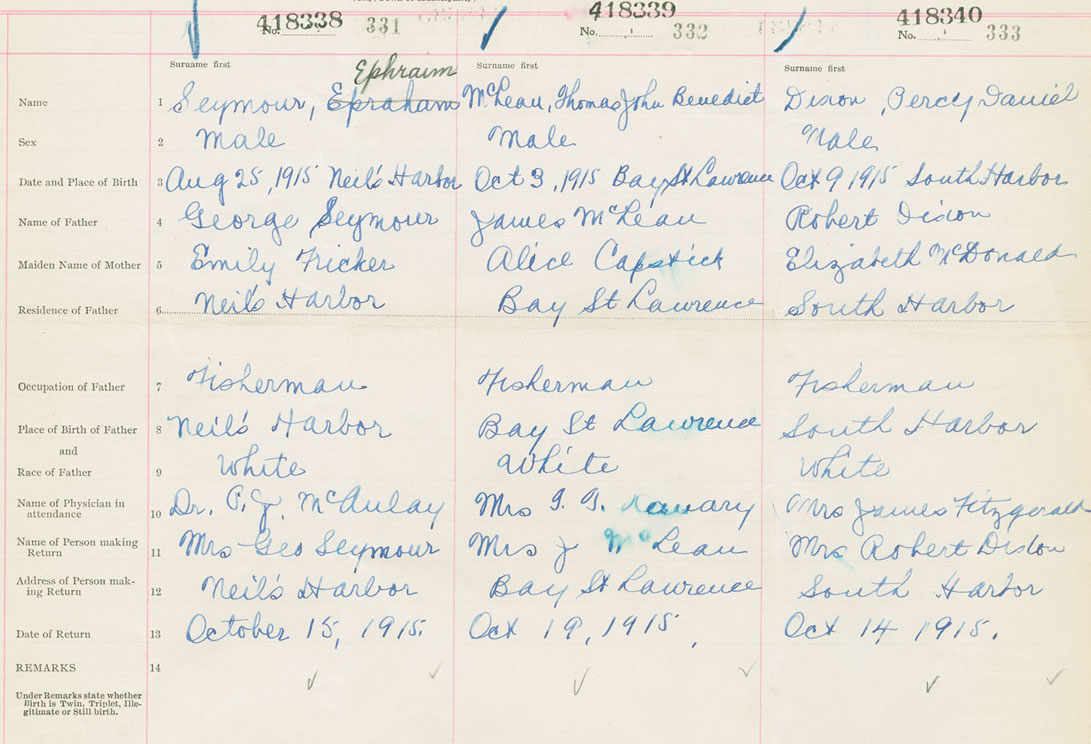 418338 418339 418340
No. 331 No. 332 No. 333
Surname first Surname first Surname first
Ephraim
Name 1 Seymour, Epraham McLean, Thomas John Benedict Dixon, Percy Daniel
Sex 2 Male Male Male
Date and Place of Birth 3 Aug 25, 1915 Neil's Harbor Oct 3, 1915 Bay St Lawrence Oct 9 1915 South Harbor
Name of Father 4 George Seymour James McLean Robert Dixon
Maiden Name of Mother 5 Emily Fricker Alice Capstick Elizabeth McDonald
Residence of Father 6 Neil's Harbor Bay St Lawrence South Harbor
Occupation of Father 7 Fisherman Fisherman Fisherman
Place of Birth of Father 8 Neil's Harbor Bay St Lawrence South Harbor
and
Race of Father 9 White White White
Name of Physician in
attendance 10 Dr. P. J. McAulay Mrs Mrs James Fitzgerald
Name of Person making
Return 11 Mrs Geo Seymour Mrs J McLean Mrs Robert Dixon
Address of Person mak-
ing Return 12 Neil's Harbor Bay St Lawrence South Harbor
Date of Return 13 October 15, 1915. Oct 19, 1915. Oct 14 1915.
REMARKS 14
Under Remarks state whether
Birth is Twin, Triplet, Ille-
gitimate or Still birth.